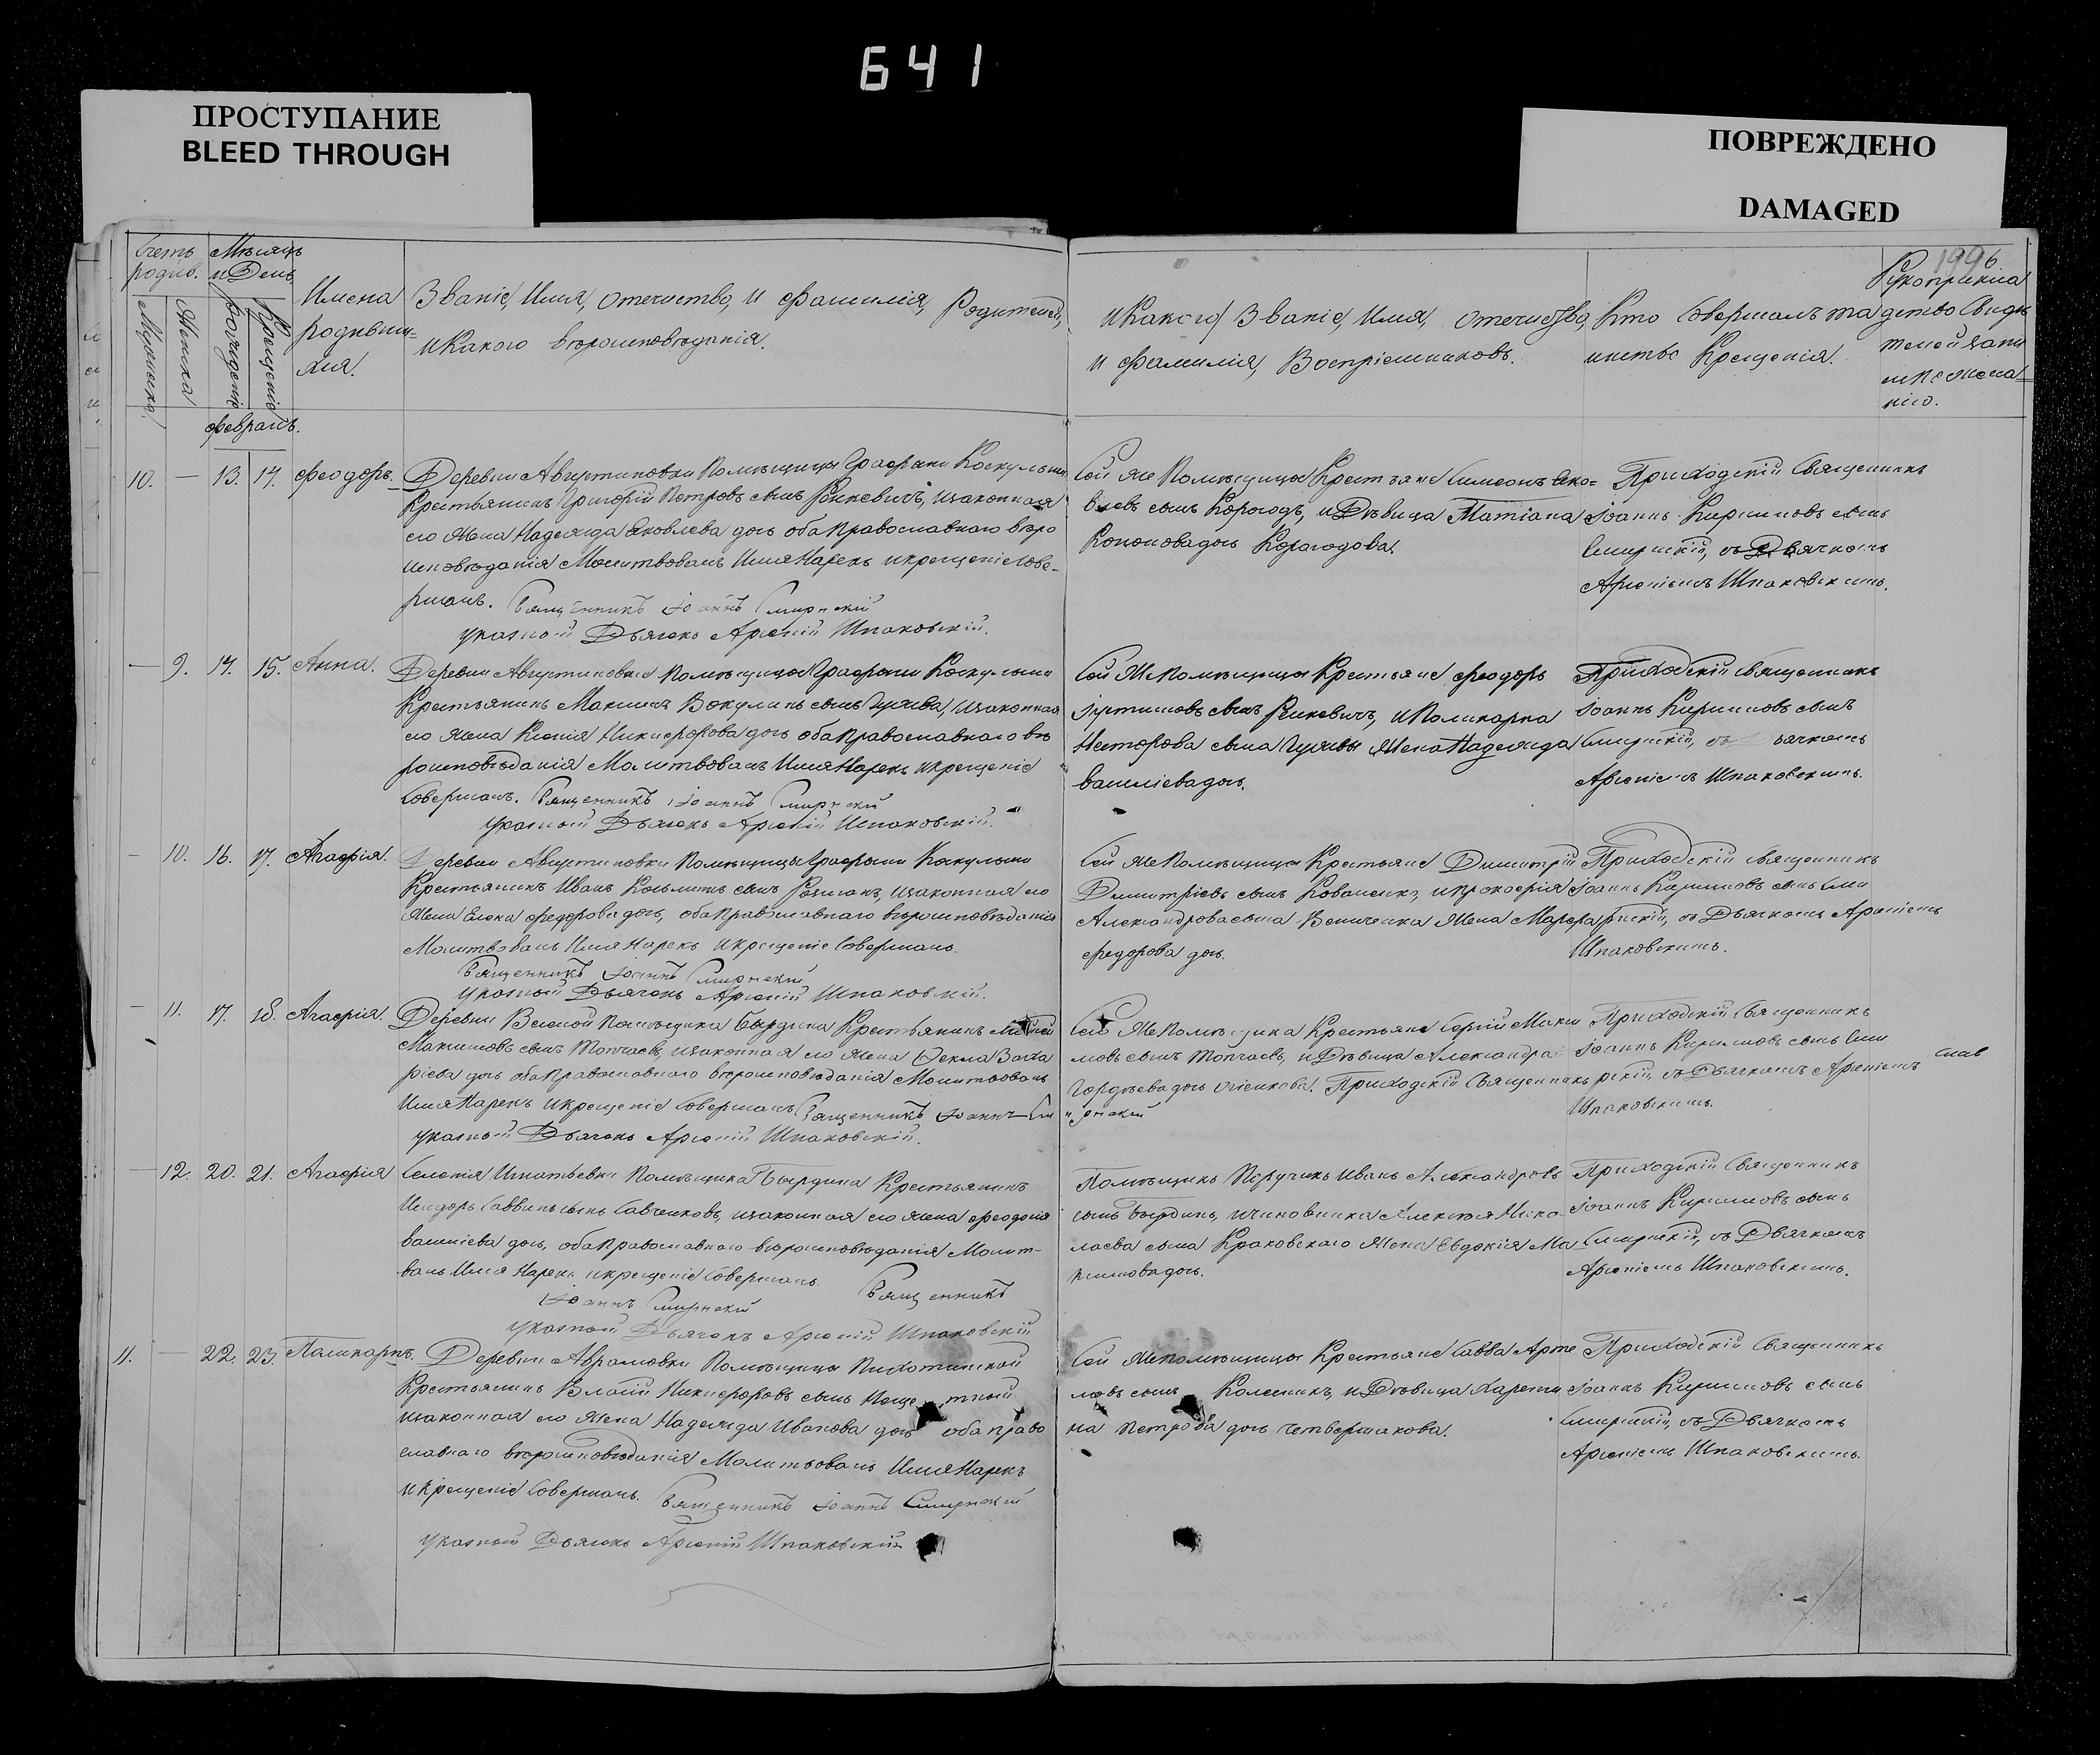 641
ПРОСТУПАНИЕ
BLEED THROUGH
ПОВРЕЖДЕНО
DAMAGED
Счетъ родив.
Мужеска
Женска
Мѣсяцъ и День
Рожденія
Крещенія
Имена родившихся.
Званіе, Имя, Отечество, и Фамилія, Родителей,
и Какого вѣроисповѣданія.
и Какого Званіе, Имя, Отечество,
и Фамилія, Воспріемниковъ.
Кто Совершалъ та
инство Крещенія.
1996
Рукоприкла
детво Свидѣ
телей запи
си по жела=
нію.
Февраль.
10. — 13. 14. Феодоръ.
Деревни Августиновки Помѣщицы Графини
Крестьянинъ Григорій Петровъ сынъ изаконная
его Жена Надежда Яковлева дочь оба Православнаго вѣро
исповѣданія Молитвовалъ Имя Нарекъ и крещеніе Сове-
ршалъ. Священникъ Іоаннъ Смирнскій
указной Дьячокъ Арсеній Шпаковскій.
Сей же Помѣщицы Крестьяне Симеонъ Яко=
влевъ сынъ Корогодъ, и Дѣвица Татіана
Кононова дочь Корогодова.
Приходскій Священникъ
Іоаннъ Кириловъ сынъ
Смирнскій, съ Дьячкомъ
Арсеніемъ Шпаковскимъ.
— 9. 14. 15. Анна.
Деревни Августиновки Помѣщицы Графини
Крестьянинъ Максимъ Вокулинъ сынъ изаконная
его Жена Ксенія Никифорова дочь оба Православнаго вѣ
роисповѣданія Молитвовалъ Имя Нарекъ и крещеніе
Совершалъ. Священникъ Іоаннъ Смирнскій
указной Дьячокъ Арсеній Шпаковскій.
Сей же Помѣщицы Крестьяне Феодоръ
сынъ и Поликарпа
Несторова сына Жена Надежда
Василіева дочь.
Приходскій Священникъ
Іоаннъ Кириловъ сынъ
Смирнскій, съ ячкомъ
Арсеніемъ Шпаковскимъ.
— 10. 16. 17. Агафія.
Деревни Августиновки Помѣщицы Графини
Крестьянинъ Иванъ Козьминъ сынъ изаконная его
Жена Елена Федорова дочь, оба Православнаго вѣроисповѣданія
Молитвовалъ Имя Нарекъ и крещеніе Совершалъ.
Священникъ Іоаннъ Смирнскій
указной Дьячокъ Арсеній Шпаковскій.
Сей же Помѣщицы Крестьяне Димитрій
Димитріевъ сынъ Коваленко, и Прокофія
Александрова сына Величенка Жена Марфа
Федорова дочь.
Приходскій Священникъ
Іоаннъ Кириловъ сынъ Сми
рнскій, съ Дьячкомъ Арсеніемъ
Шпаковскимъ.
— 11. 17. 18. Агафія.
Деревни Помѣщика Бырдина Крестьянинъ
Максимовъ сынъ Топчаевъ, изаконная его Жена Фекла Заха
ріева дочь оба Православнаго вѣроисповѣданія Молитвовалъ
Имя Нарекъ и Крещеніе Совершалъ Священникъ Іоаннъ См
указной Дьячокъ Арсеній Шпаковскій.
Сего же Помѣщика Крестьяне Сергій Макси
мовъ сынъ Топчаевъ, и Дѣвица Александра
Гордѣева дочь Приходскій Священникъ
ирнскій
Приходскій Священникъ
Іоаннъ Кириловъ сынъ Сми
рскій, съ Дьячкомъ Арсеніемъ
Шпаковскимъ.
— 12. 20. 21. Агафія
Селенія Игнатьевки Помѣщика Бырдина Крестьянинъ
Исидоръ Саввинъ сынъ Савченковъ, изаконная его Жена Феодосія
Василіева дочь, оба Православнаго вѣроисповѣданія Молит-
валъ Имя Нарекъ и крещеніе Совершалъ. Священникъ
Іоаннъ Смирнскій
указной Дьячокъ Арсеній Шпаковскій
Помѣщикъ Поручикъ Иванъ Александровъ
сынъ Бырдинъ, и чиновника Алексѣя Нико
лаева сына Краковскаго Жена Евдокія Ма
ксимова дочь.
Приходскій Священникъ
Іоаннъ Кириловъ сынъ
Смирнскій, съ Дьячкомъ
Арсеніемъ Шпаковскимъ.
11. — 22. 23. Поликарпъ.
Деревни Аврамовки Помѣщицы
Крестьянинъ Власій Никифоровъ сынъ
изаконная его Жена Надежда Иванова дочь оба право
славнаго вѣроисповѣданія Молитвовалъ Имя Нарекъ
и крещеніе Совершалъ. Священникъ Іоаннъ Смирнскій
указной Дьячокъ Арсеній Шпаковскій
Сей же помѣщицы Крестьяне Савва Арте
мовъ сынъ Колесникъ, и Дѣвица Харити
на Петрова дочь Четвертакова.
Приходскій Священникъ
Іоаннъ Кириловъ сынъ
Смирнскій, съ Дьячкомъ
Арсеніемъ Шпаковскимъ.